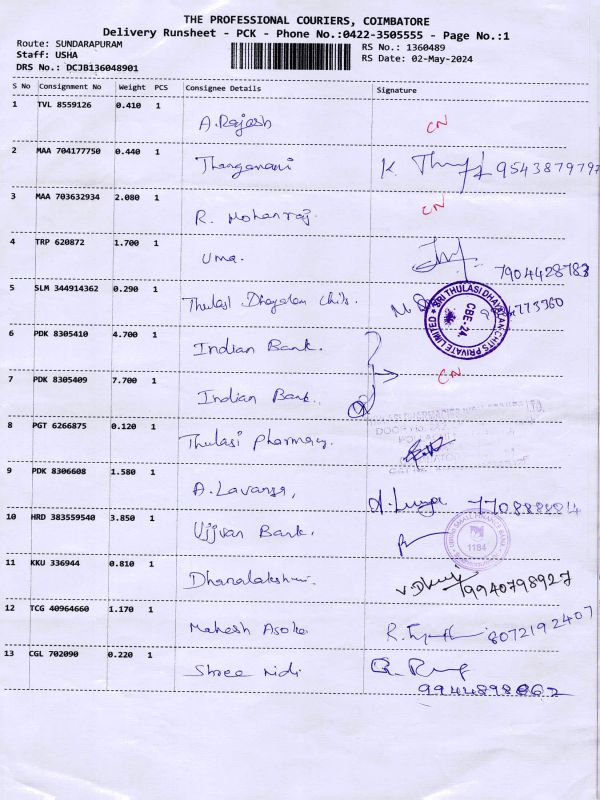 THE PROFESSIONAL COURIERS, COIMBATORE
Delivery Runsheet - PCK - Phone No.:0422-3505555 - Page No.:1
Route: SUNDARAPURAM
Staff: USHA
DRS No.: DCJB136048901
RS No.: 1360489
RS Date: 02-May-2024
S No Consignment No Weight PCS Consignee Details Signature
1 TVL 8559126 0.410 1 A.Rajesh CN
2 MAA 704177750 0.440 1 Thangamani K. 9543879797
3 MAA 703632934 2.080 1 R. Mohanraj. CN
4 TRP 620872 1.700 1 Uma. 7904428783
5 SLM 344914362 0.290 1 Thulasi Dhayalan Chits.
SRI THULASI DHAYALAN CHITS PRIVATE LIMITED
CBE-24.
6 PDK 8305410 4.700 1 Indian Bank.
7 PDK 8305409 7.700 1 Indian Bank. CN
8 PGT 6266875 0.120 1 Thulasi Pharmacy.
9 PDK 8306608 1.580 1 A. Lavanya,
10 HRD 383559540 3.850 1 Ujjivan Bank.
1184
11 KKU 336944 0.810 1 Dhanalakshmi. 9940798927
12 TCG 40964660 1.170 1 Mahesh Asoke R. 8072192407
13 CGL 702090 0.220 1 Shree nidi
9944898862